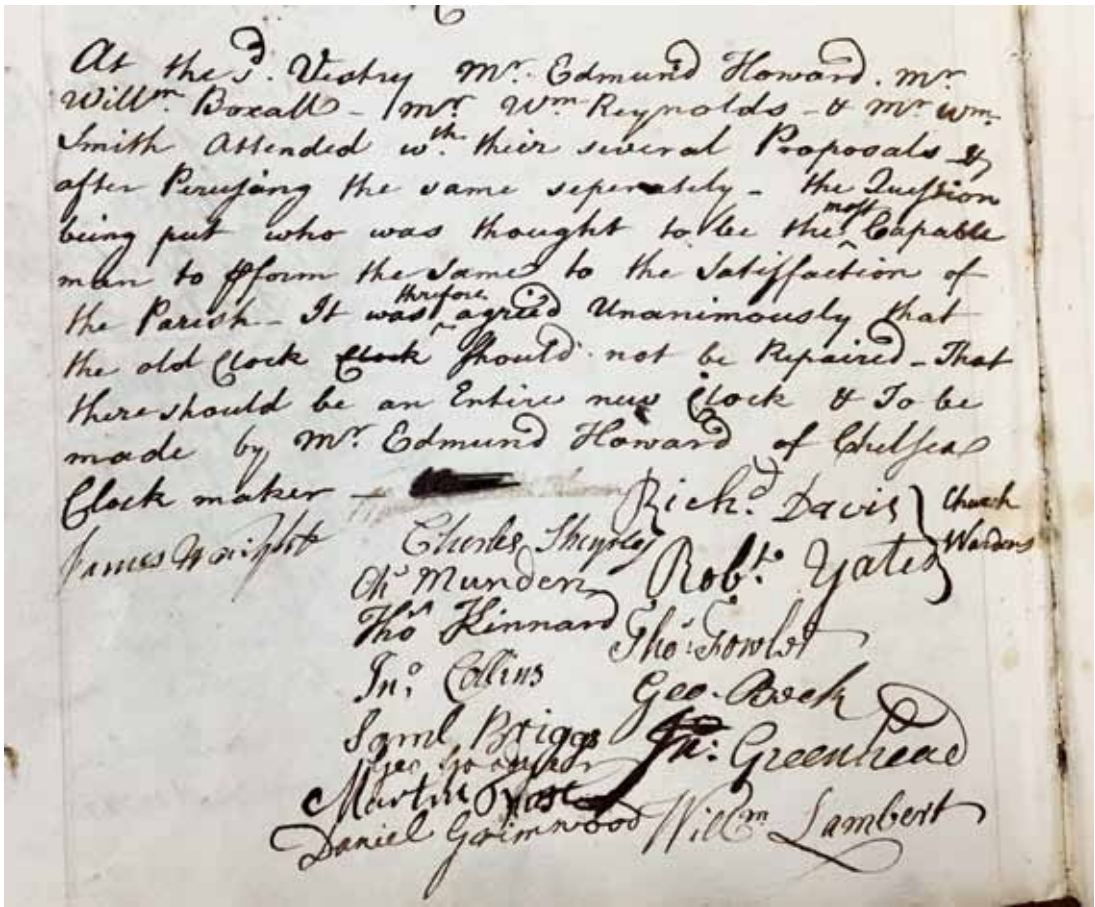 At the sd. Vestry Mr. Edmund Howard. Mr
Willm Boxall - Mr Wm Reynolds - & Mr Wm.
Smith Attended wth. their several Proposals &
after Perusing the same seperately - the Question
being put who was thought to be the ^most Capable
man to pform the same to the Satisfaction of
the Parish - It was ^therefore agried Unanimously that
the old Clock Clock Should not be Repaired - That
there should be an Entire new Clock & To be
made by Mr. Edmund Howard of Chelsea
Clock maker -
Richd. Davis } Church
Robt. Yates } Wardens
James
Charles
Chr Munden
Thos Kinnard
Thos. Fowler
Jno. Collins
Geo. Beck
Saml Briggs
Jn: Greenhead
Geo
Martin
Daniel Grimwood
Willm Lambert